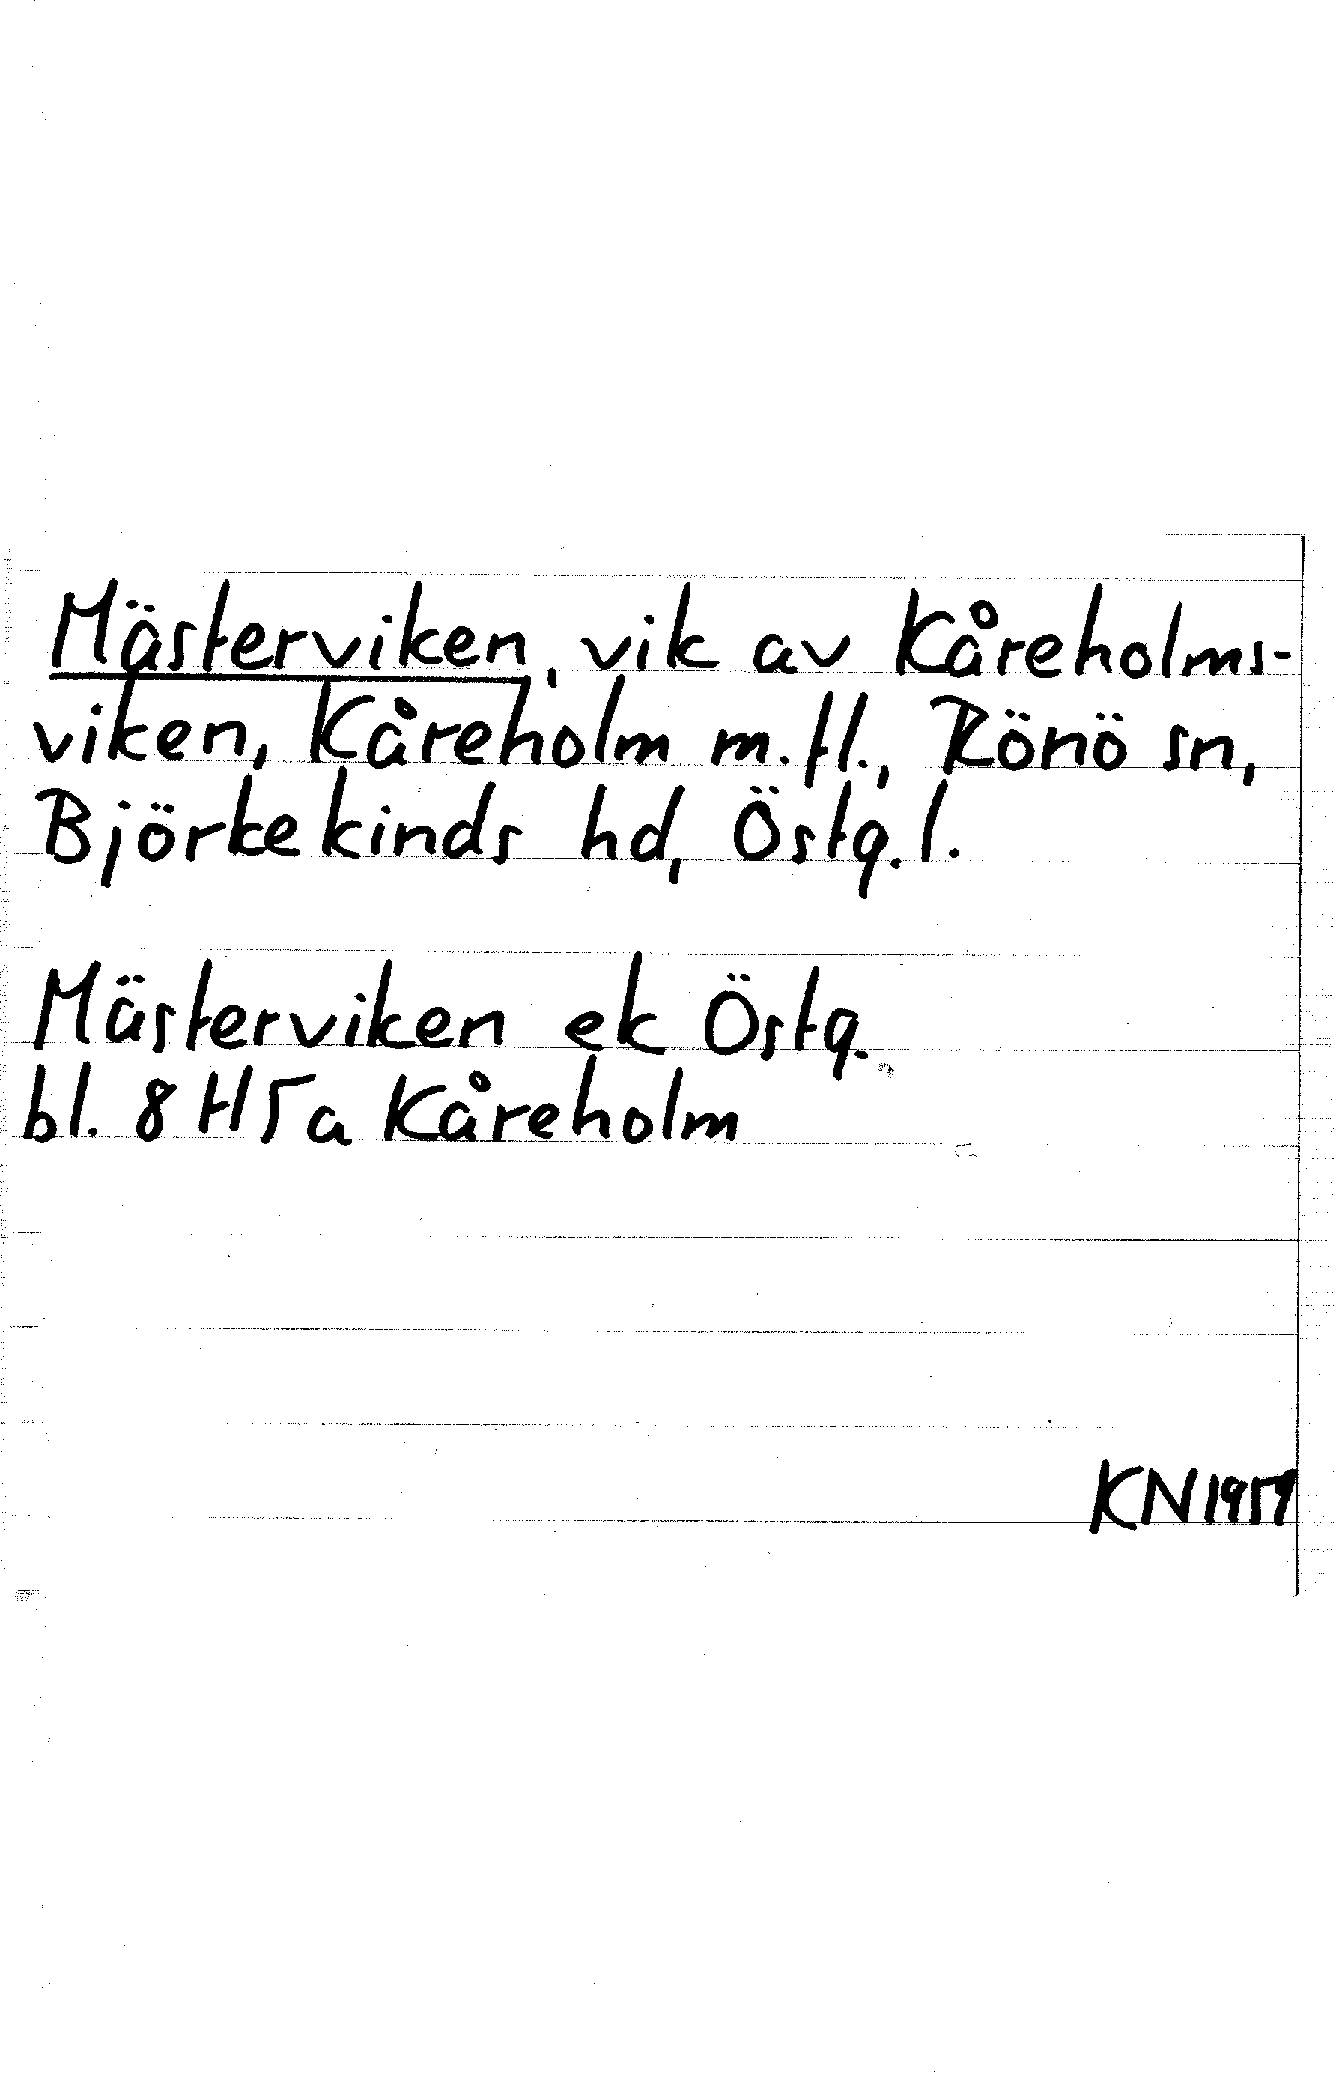 Mästerviken, vik av Kåreholms-
viken, Kåreholm m.fl., Rönö sn,
Björkekinds hd, Östg.l.
Mästerviken ek Östg.
bl. 8 H 5 a Kåreholm
KN 1959